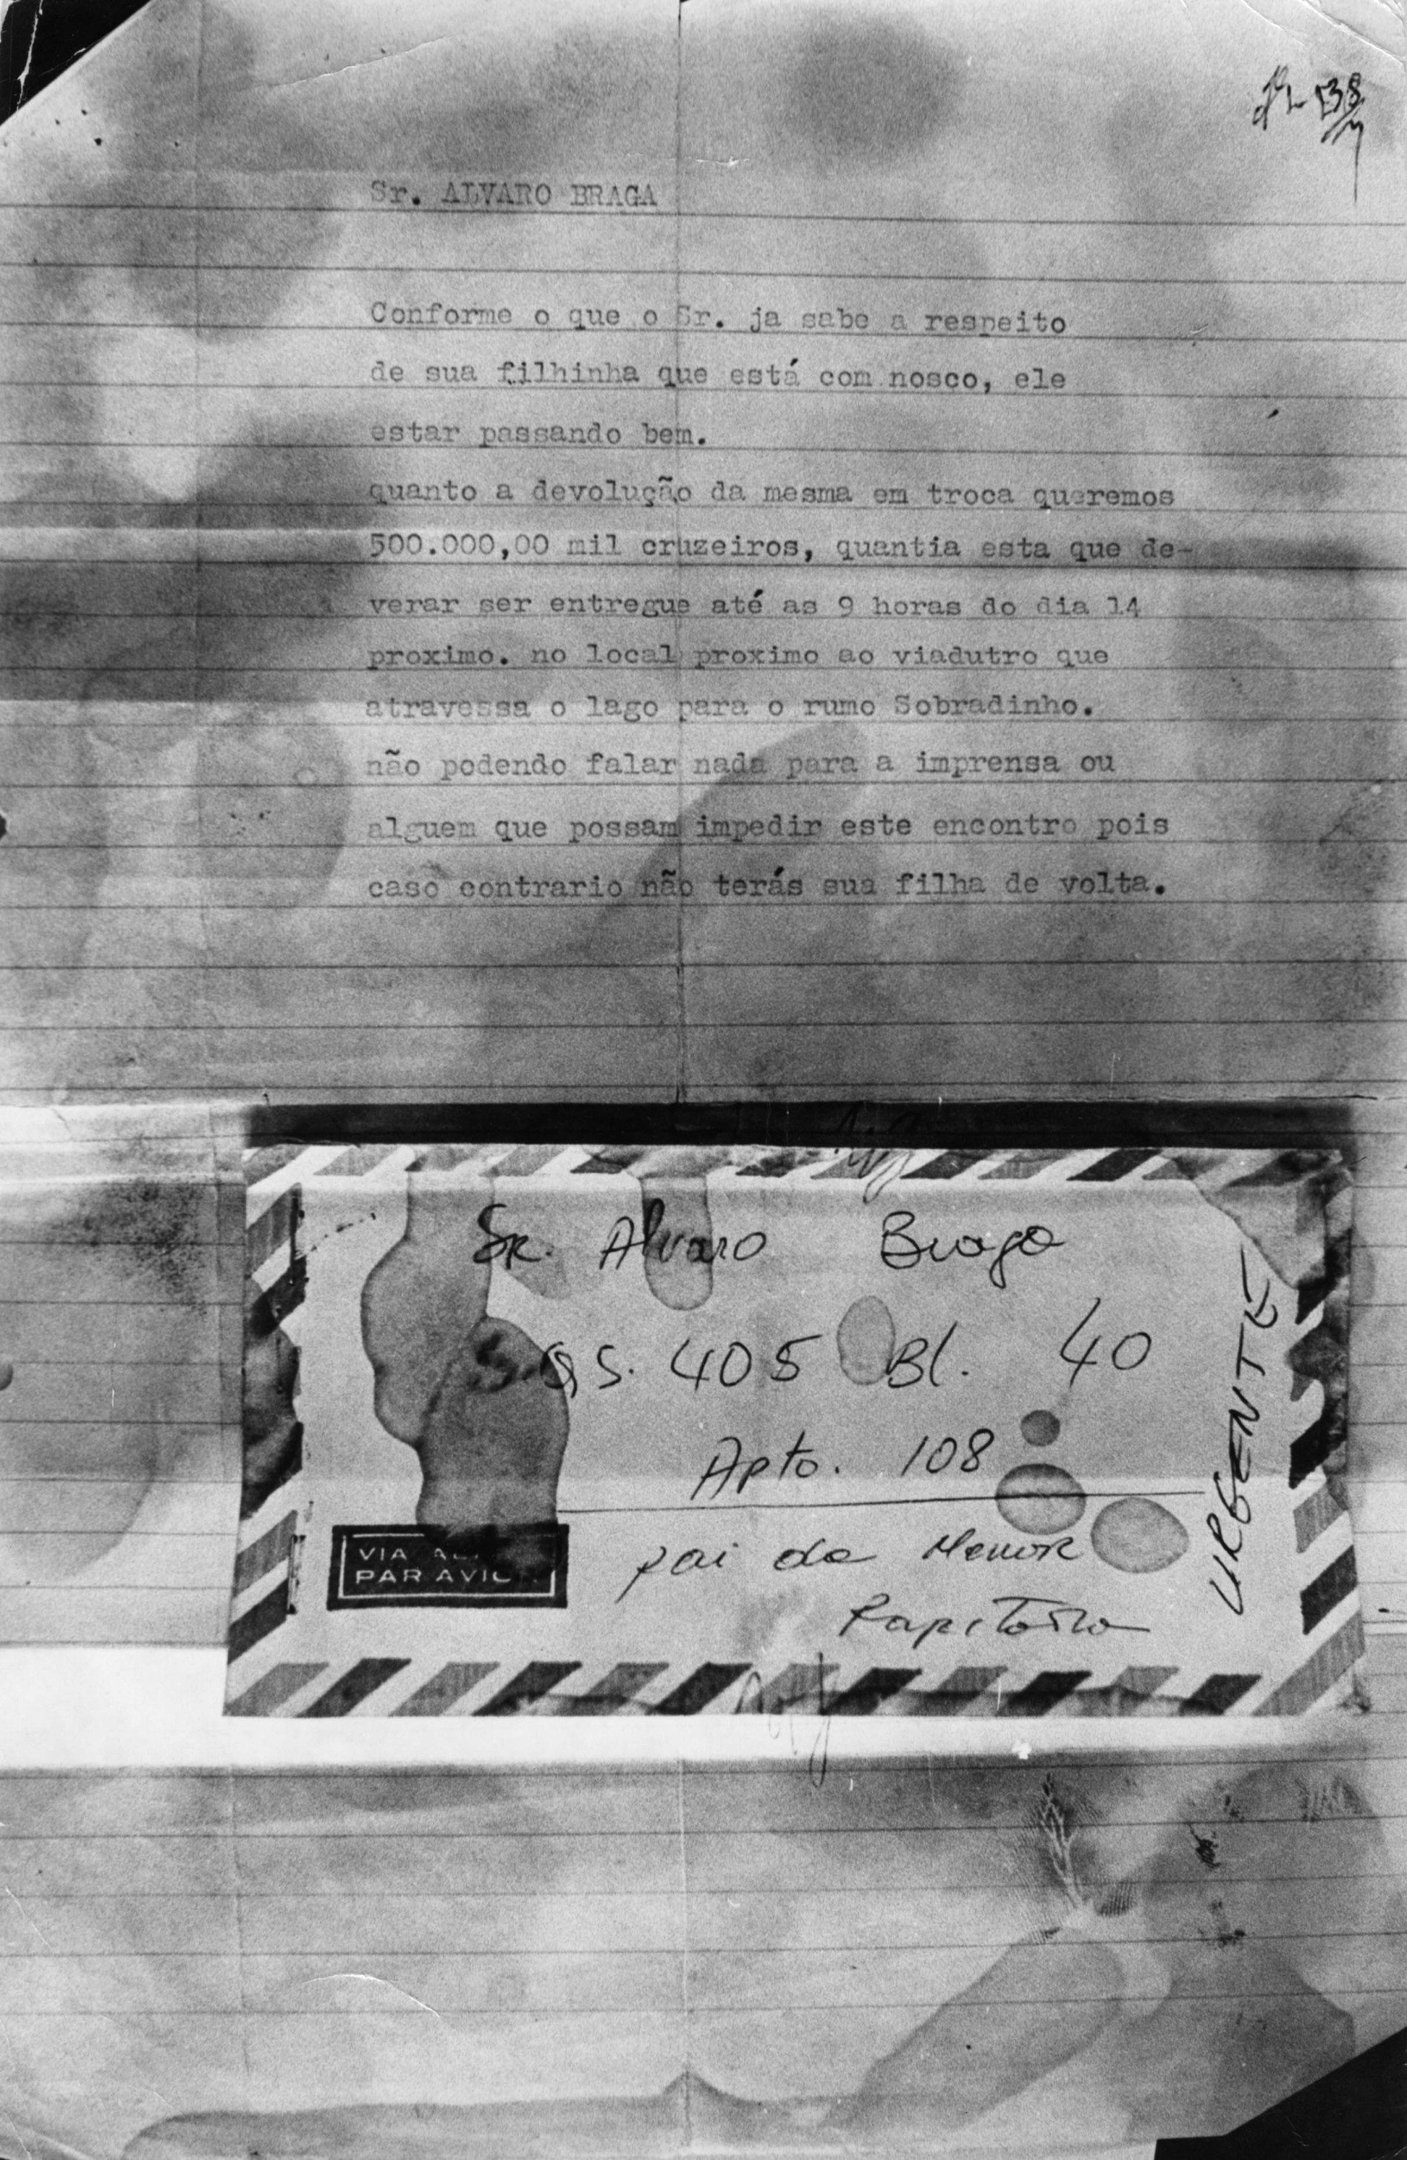 138
Sr. ALVARO BRAGA
Conforme o que o Sr. ja sabe a respeito
de sua filhinha que está com nosco, ele
estar passando bem.
quanto a devolução da mesma em troca queremos
500.000,00 mil cruzeiros, quantia esta que de-
verar ser entregue até as 9 horas do dia 14
proximo. no local proximo ao viadutro que
atravessa o lago para o rumo Sobradinho.
não podendo falar nada para a imprensa ou
alguem que possam impedir este encontro pois
caso contrario não terás sua filha de volta.
Sr. Alvaro Braga
S.QS. 405 Bl. 40
Apto. 108
pai da Menor
URGENTE
VIA
PAR AVION